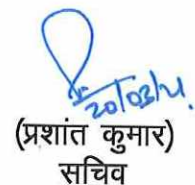 20/03/21
(प्रशांत कुमार)
सचिव